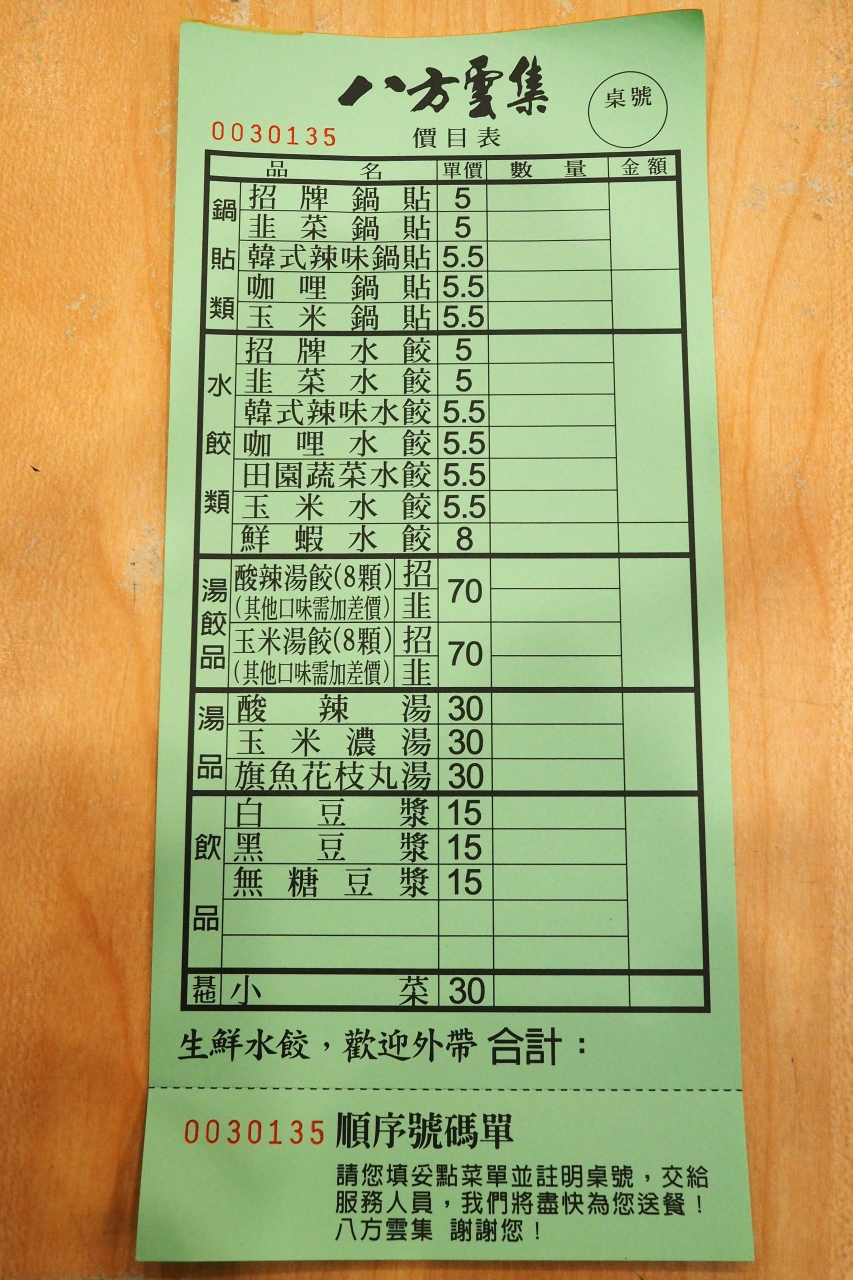 八方雲集
桌號
0030135
價目表
品名 單價 數量 金額
鍋貼類
招牌鍋貼 5
韭菜鍋貼 5
韓式辣味鍋貼 5.5
咖哩鍋貼 5.5
玉米鍋貼 5.5
水餃類
招牌水餃 5
韭菜水餃 5
韓式辣味水餃 5.5
咖哩水餃 5.5
田園蔬菜水餃 5.5
玉米水餃 5.5
鮮蝦水餃 8
湯餃品
酸辣湯餃(8顆) 招 70
(其他口味需加差價) 韭
玉米湯餃(8顆) 招 70
(其他口味需加差價) 韭
湯品
酸辣湯 30
玉米濃湯 30
旗魚花枝丸湯 30
飲品
白豆漿 15
黑豆漿 15
無糖豆漿 15
其他
小菜 30
生鮮水餃，歡迎外帶 合計：
0030135 順序號碼單
請您填妥點菜單並註明桌號，交給
服務人員，我們將盡快為您送餐！
八方雲集 謝謝您！